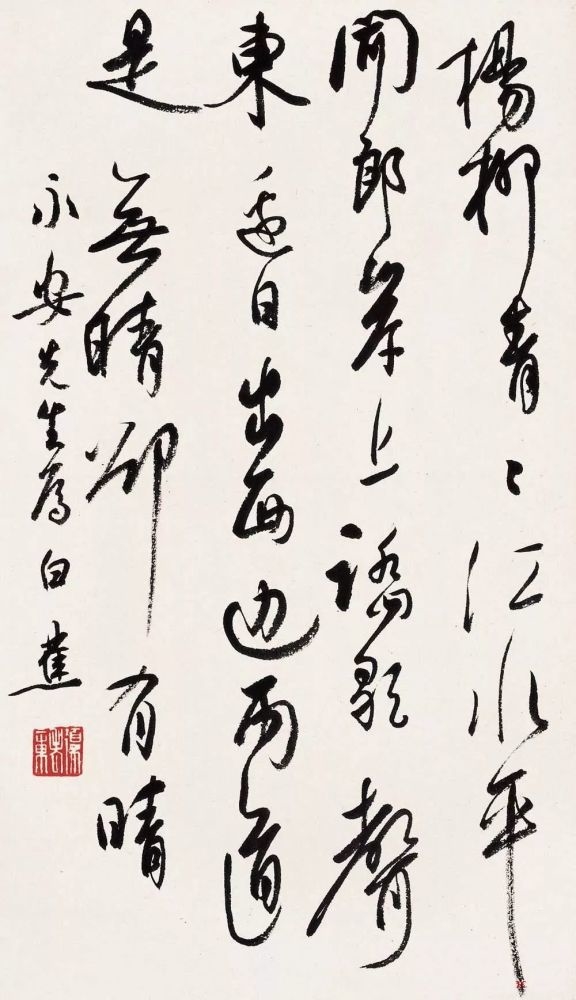 楊柳青〻江水平
聞郎岸上踏歌聲
東邊日出西边雨道
是無晴卻有晴
永安先生属 白蕉